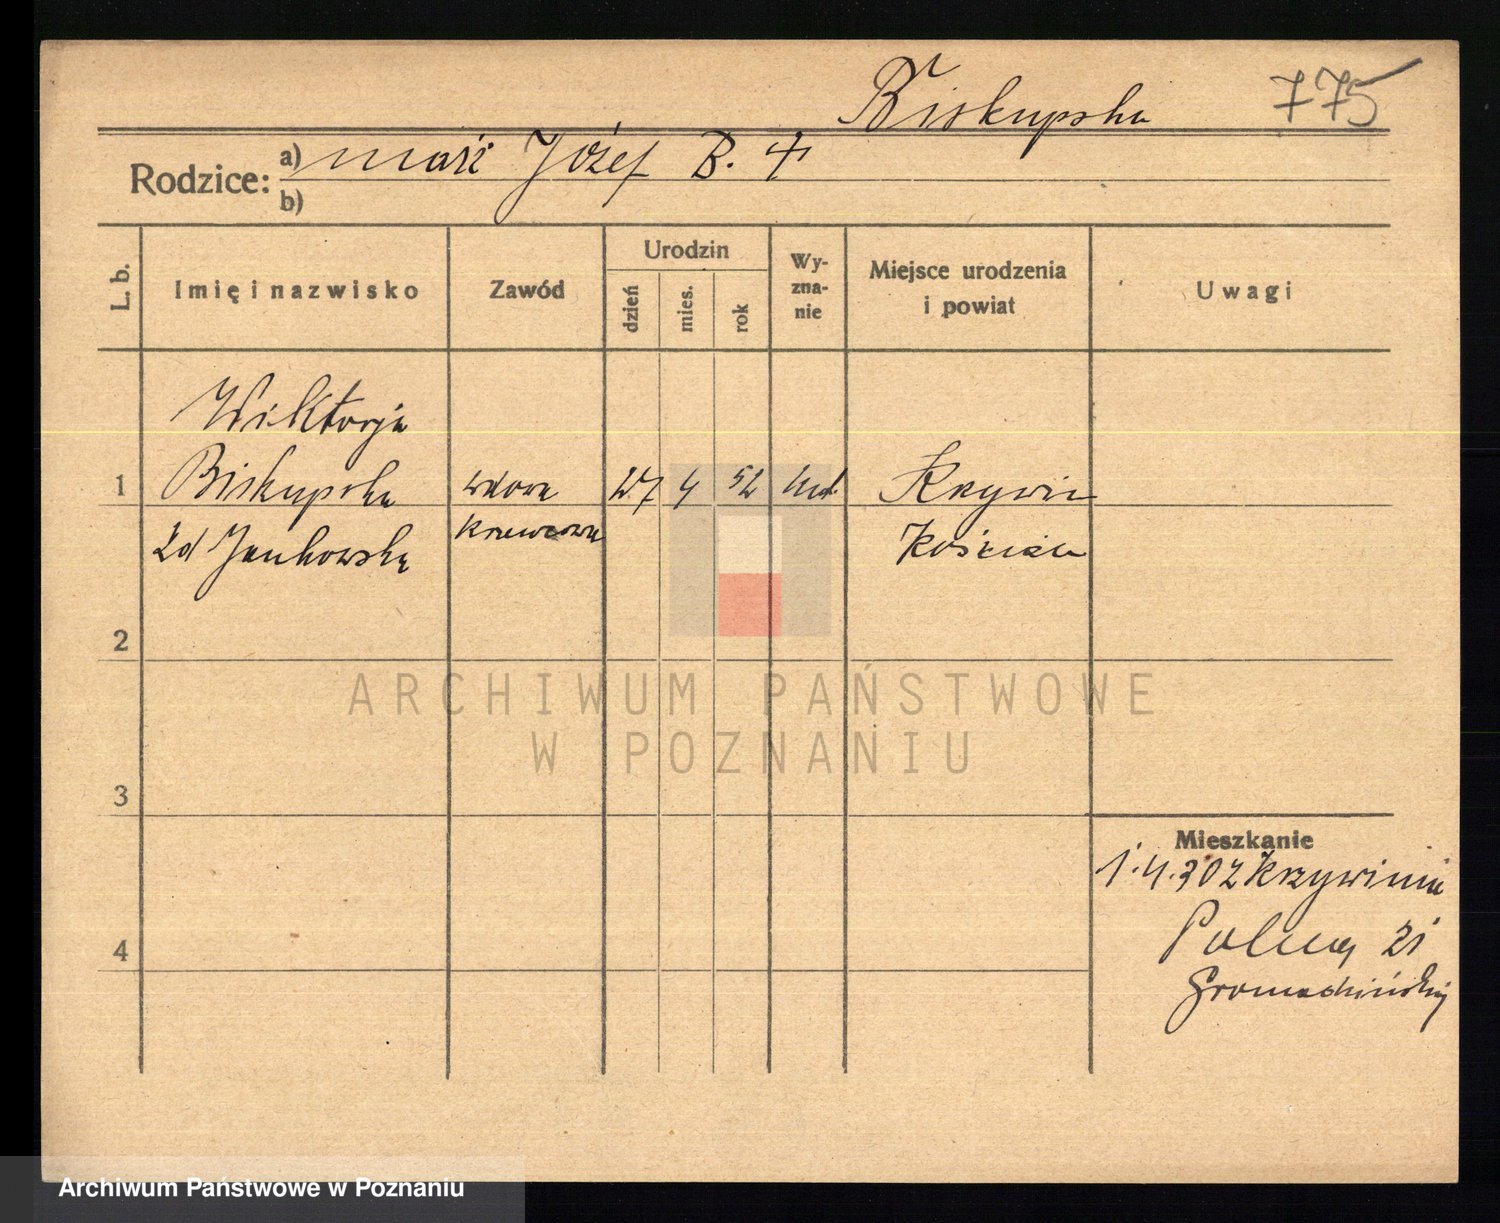 Biskupska 775
Rodzice: a) mąż Józef B. +
b)
L. b.
Imię i nazwisko
Zawód
Urodzin
dzień
mies.
rok
Wy-
zna-
nie
Miejsce urodzenia
i powiat
Uwagi
Wiktorja
1 Biskupska wdowa 27 4 52 kat. Krzywiń
zd Jankowska krawcowa Kościan
2
3
4
Mieszkanie
1.4.30 z Krzywinia
Polna 21
ARCHIWUM PAŃSTWOWE
W POZNANIU
Archiwum Państwowe w Poznaniu